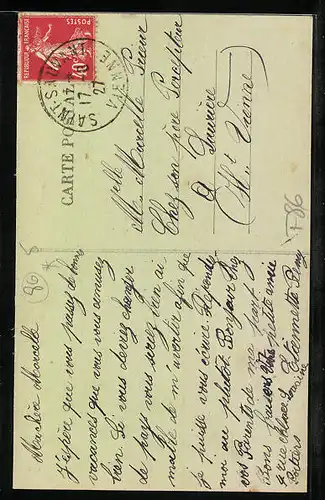 REPUBLIQUE FRANÇAISE
POSTES
40c
SAVIN
17
27
VIENNE
CARTE POSTALE
Melle
Marcelle
Chez son père Percepteur
à Laurière
(Hte Vienne)
F-86
86
Ma chère Marcelle
J'espère que vous passez de bonnes
vacances, que vous vous amusez
bien. Si vous devez changer
de pays vous serez bien ai
mable de m'avertir afin que
je puisse vous écrire. Réponds
moi au plutôt. Bonjour chez
vos Parents de ma part
Bons baisers
Etiennette
Poitiers